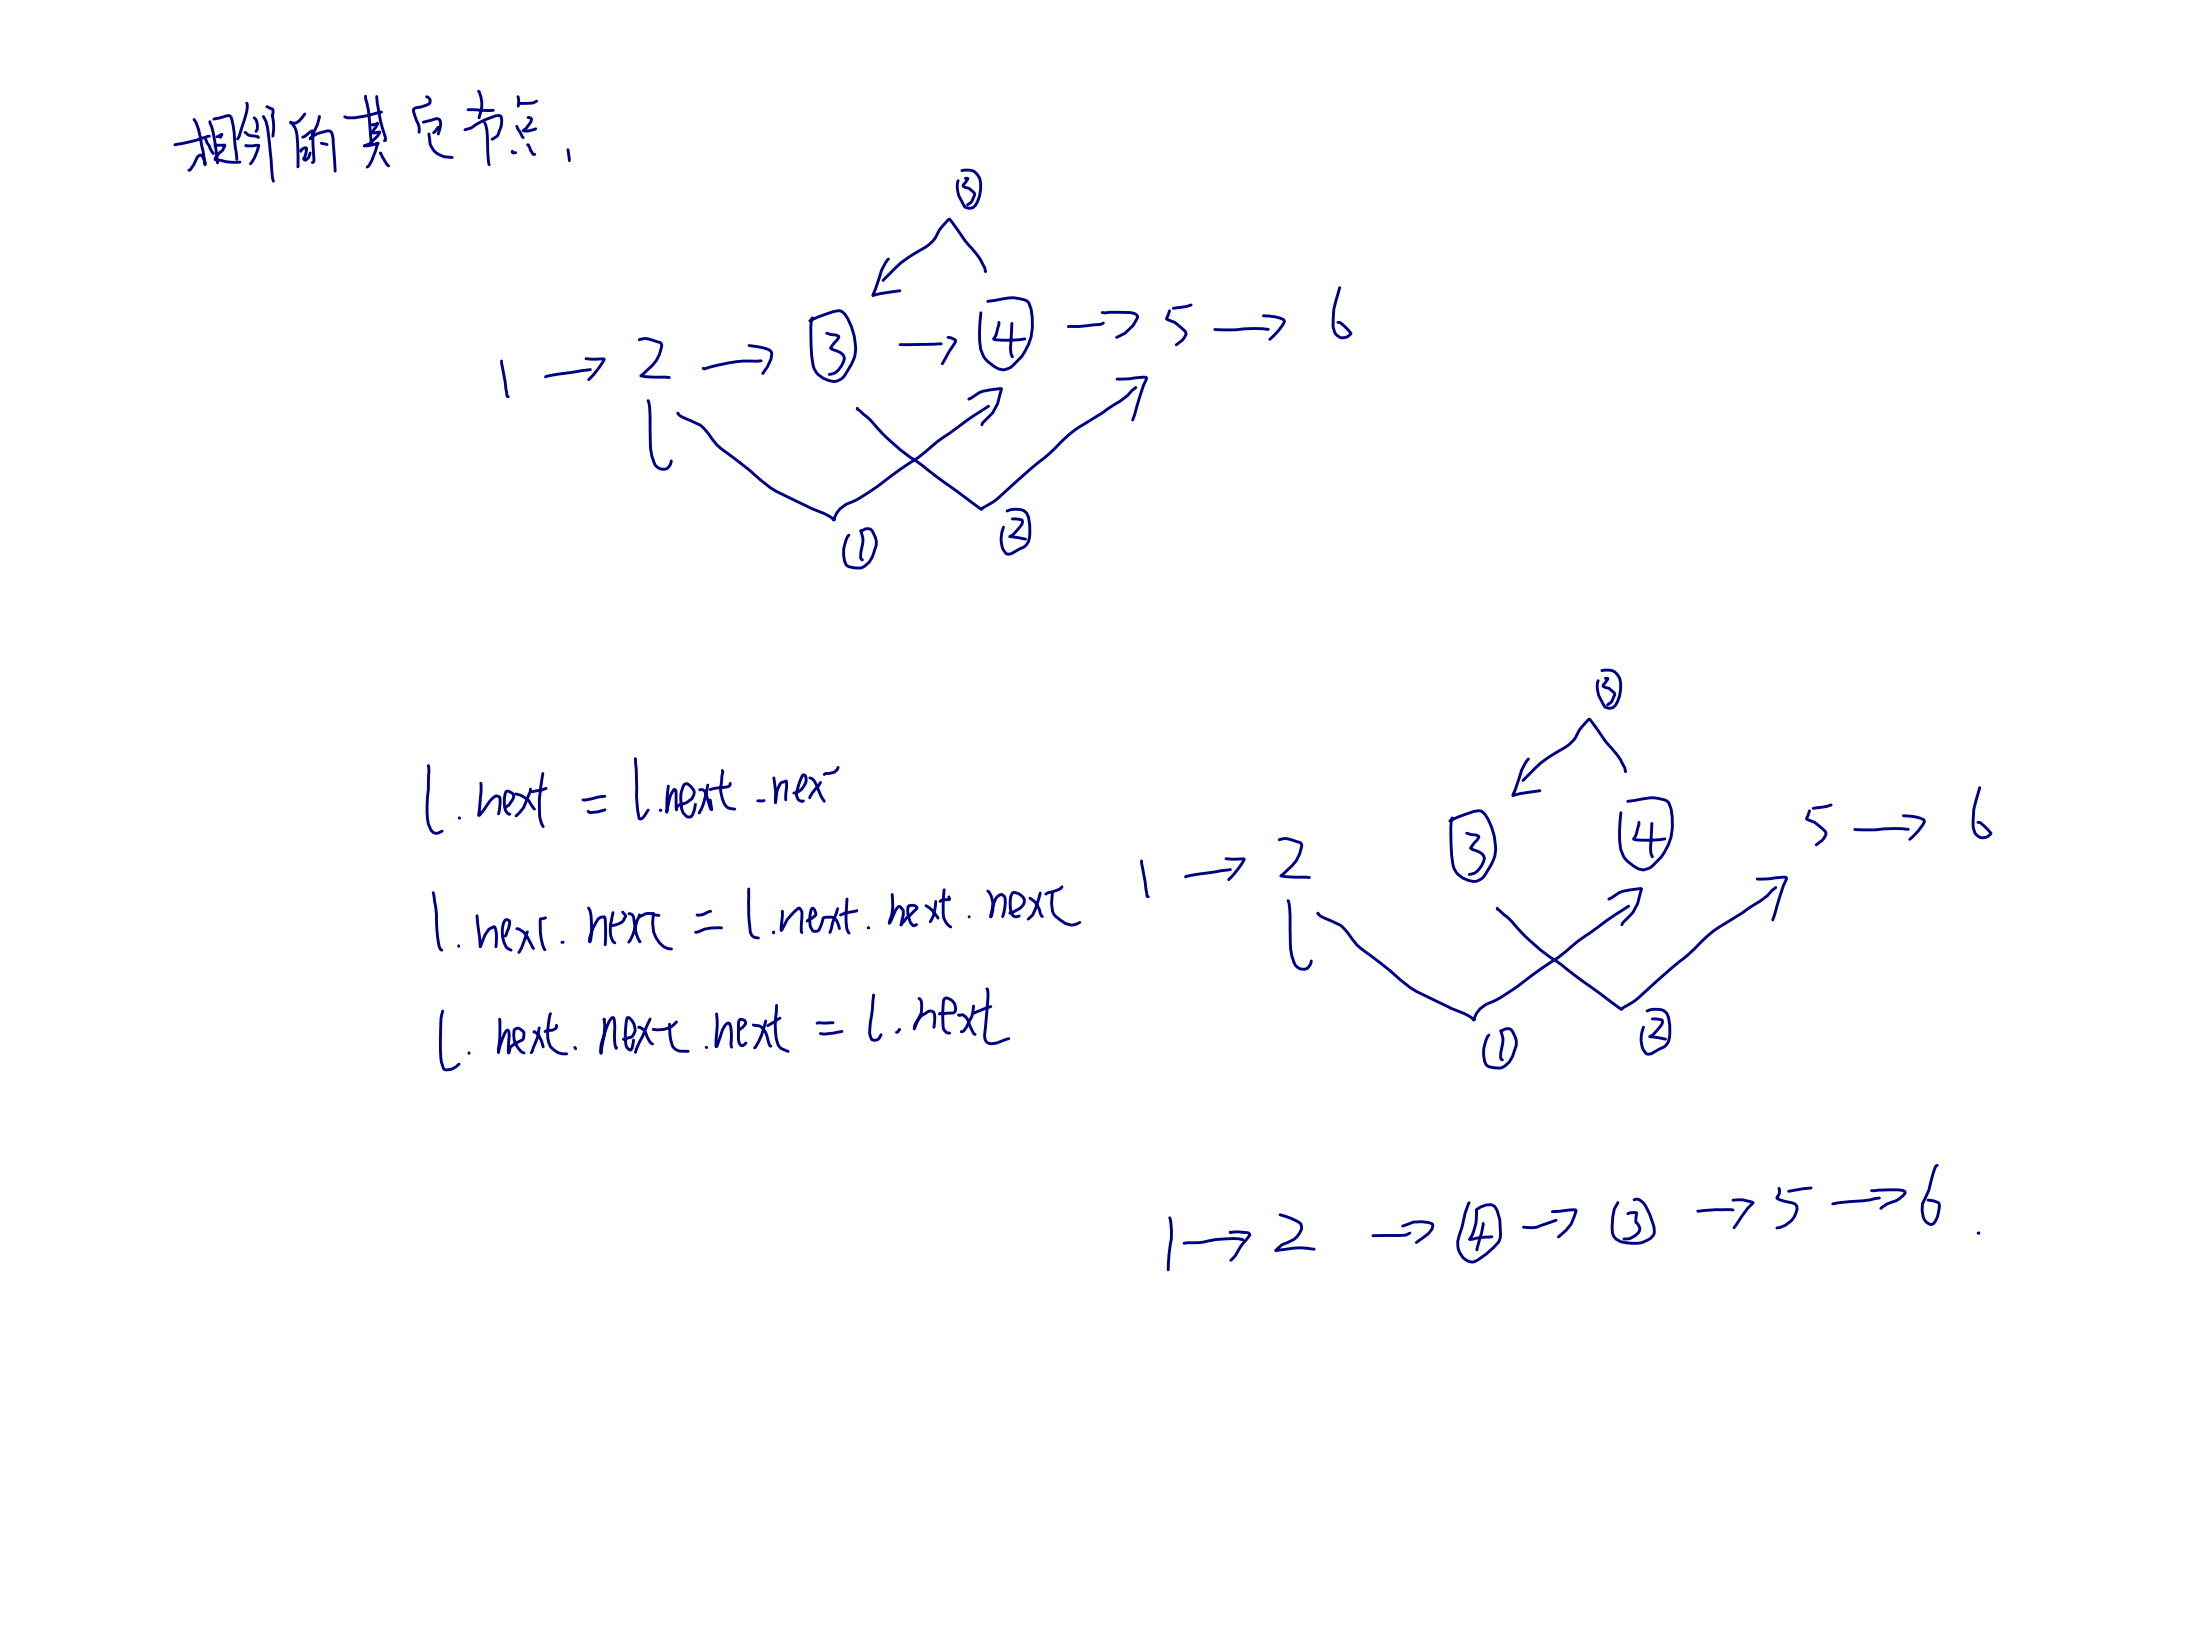 相邻的其它节点,
③
1 → 2 → ③ → ④ → 5 → 6
l
① ②
③
l.next = l.next.next
1 → 2 ③ ④ 5 → 6
l.next.next = l.next.next.next
l
l.next.next.next = l.next
① ②
1 → 2 → ④ → ③ → 5 → 6.